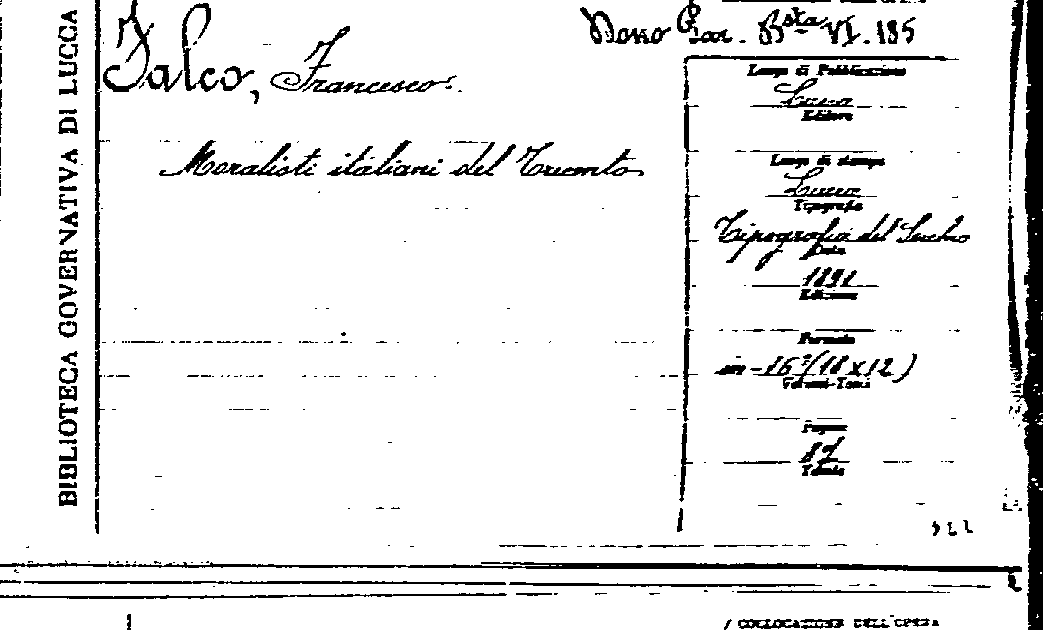 BIBLIOTECA GOVERNATIVA DI LUCCA
Falco, Francesco.
Moralisti italiani del Trecento
Busta VI. 185
Luogo di Pubblicazione
Lucca
Editore
Luogo di stampa
Lucca
Tipografia
Tipografia del Serchio
Data
1891
Edizione
Formato
in-16º (18 x 12)
Volumi-Tomi
Pagine
87
Tavole
COLLOCAZIONE DELL'OPERA